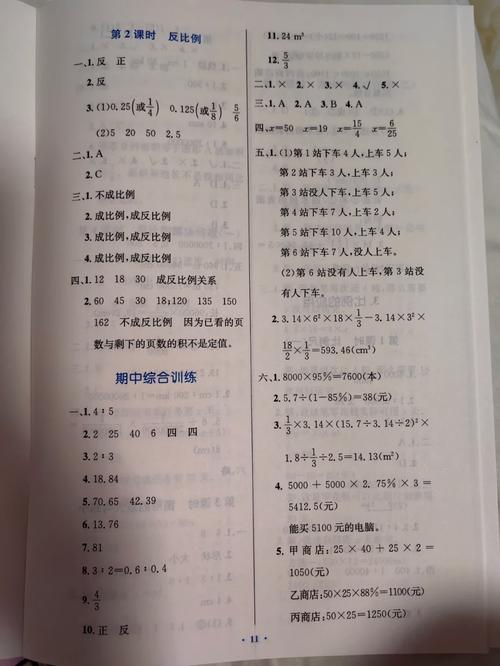 第2课时 反比例
一、1.反 正
2.反
3.(1)0.25(或1/4) 0.125(或1/8) 5/6
(2)5 20 50 2.5
二、1.A
2.C
三、1.不成比例
2.成比例,成反比例
3.成比例,成反比例
4.成比例,成反比例
四、1.12 18 30 成反比例关系
2.60 45 30 18;120 135 150
162 不成反比例 因为已看的页
数与剩下的页数的积不是定值。
期中综合训练
一、1.4∶5
2.2 25 40 6 四 四
3.2∶3
4.18.84
5.70.65 42.39
6.13.76
7.81
8.3∶2=0.6∶0.4
9.4/3
10.正 反
11.24 m³
12.5/3
二、1.× 2.× 3.× 4.√ 5.×
三、1.A 2.A 3.B 4.A
四、x=50 x=19 x=15/4 x=6/25
五、1.(1)第1站下车4人,上车5人;
第2站下车3人,上车3人;
第3站没人下车,上车5人;
第4站下车7人,上车2人;
第5站下车10人,上车4人;
第6站下车7人,没人上车。
(2)第6站没有人上车,第3站没
有人下车。
2.3.14×6²×18×1/3-3.14×3²×
18/2×1/3=593.46(cm³)
六、1.8000×95%=7600(本)
2.5.7÷(1-85%)=38(元)
3.1/3×3.14×(15.7÷3.14÷2)²×
1.8÷1/3÷2.5=14.13(m²)
4.5000+5000×2.75%×3=
5412.5(元)
能买5100元的电脑。
5.甲商店:25×40+25×2=
1050(元)
乙商店:50×25×88%=1100(元)
丙商店:50×25=1250(元)
· 11 ·